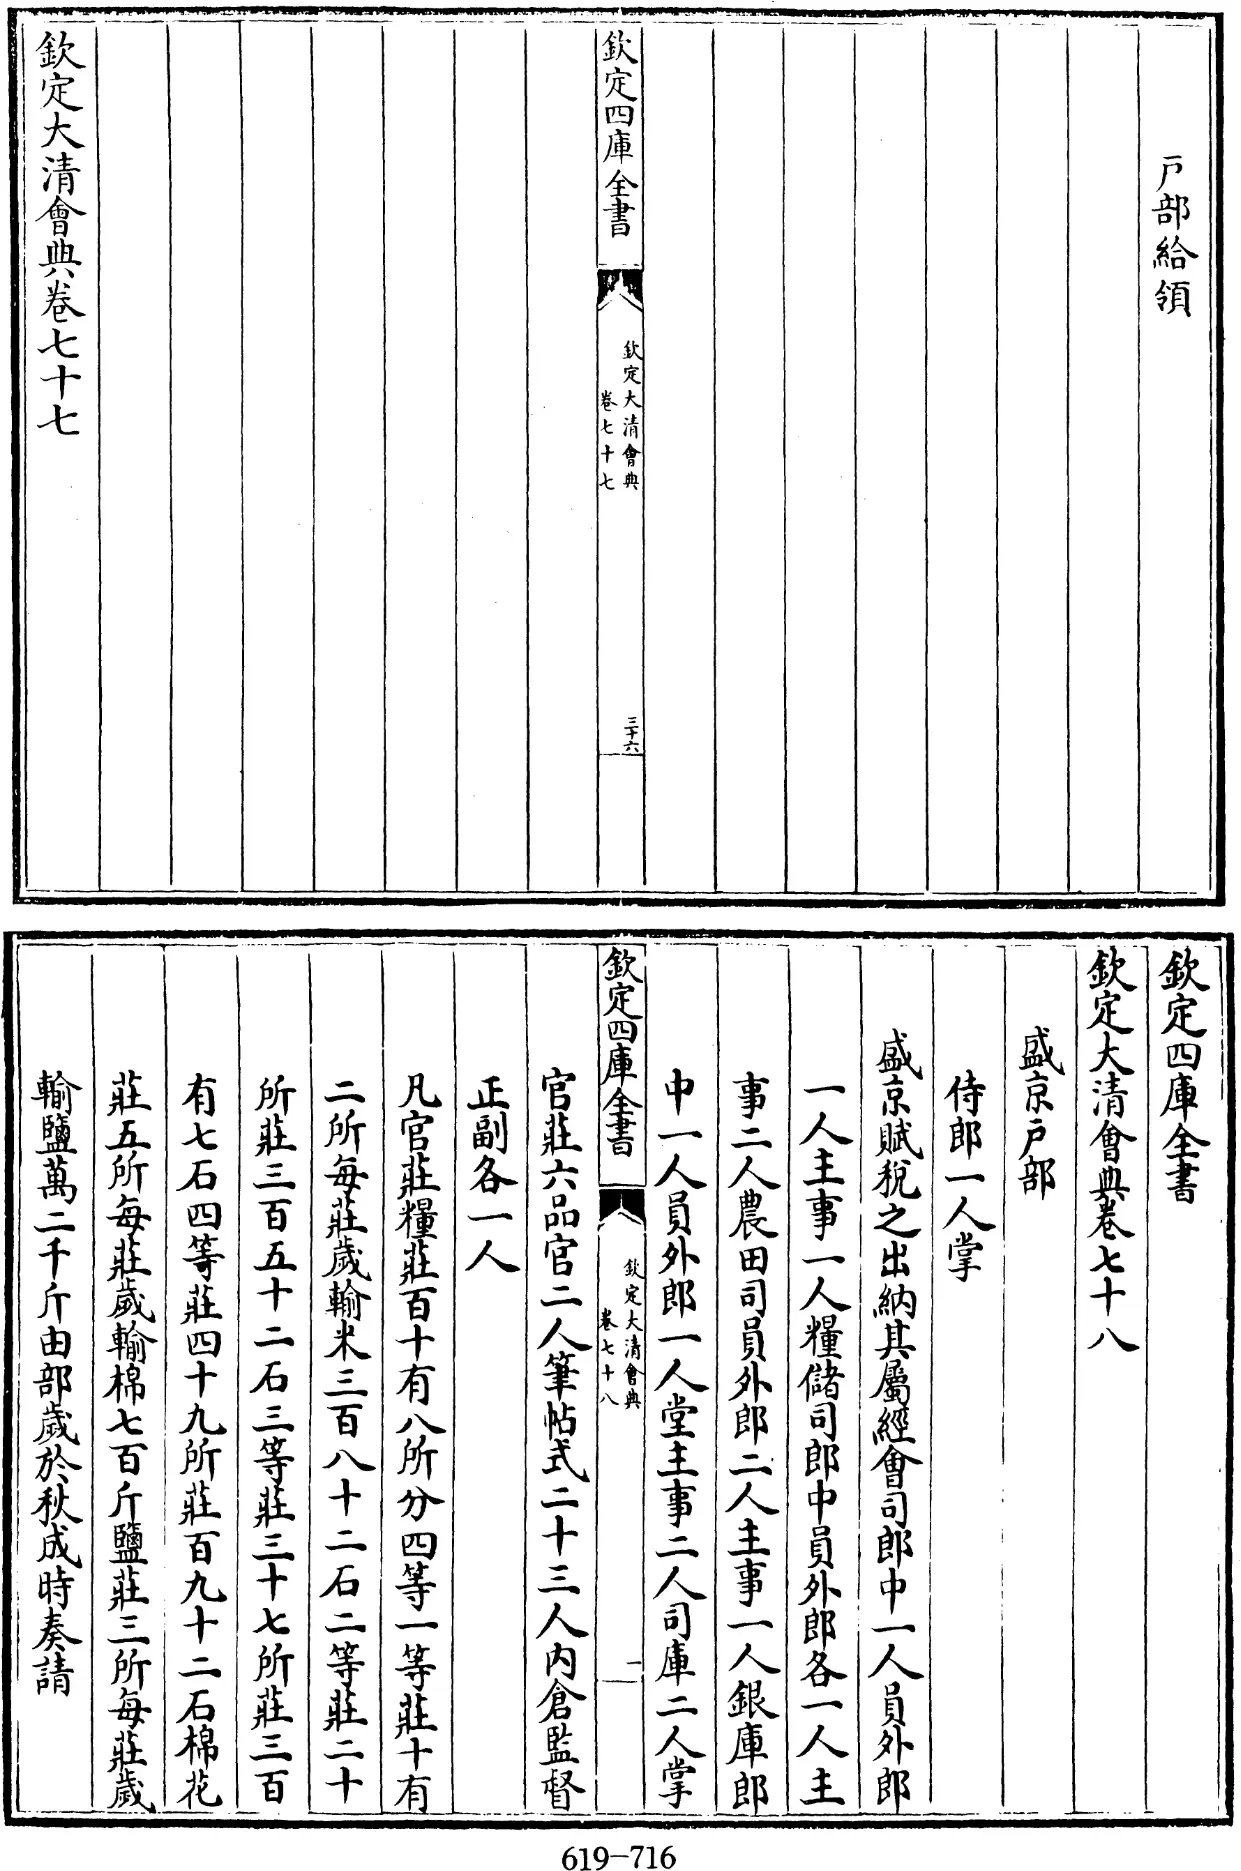 戸部給領
欽定四庫全書
欽定大清會典
卷七十七
三十六
欽定大清會典卷七十七
欽定四庫全書
欽定大清會典卷七十八
盛京戸部
侍郎一人掌
盛京賦稅之出納其屬經會司郎中一人員外郎
一人主事一人糧儲司郎中員外郎各一人主
事二人農田司員外郎二人主事一人銀庫郎
中一人員外郎一人堂主事二人司庫二人掌
欽定四庫全書
欽定大清會典
卷七十八
一
官莊六品官二人筆帖式二十三人內倉監督
正副各一人
凡官莊糧莊百十有八所分四等一等莊十有
二所每莊歲輸米三百八十二石二等莊二十
所莊三百五十二石三等莊三十七所莊三百
有七石四等莊四十九所莊百九十二石棉花
莊五所每莊歲輸棉七百斤鹽莊三所每莊歲
輸鹽萬二千斤由部歲於秋成時奏請
619-716